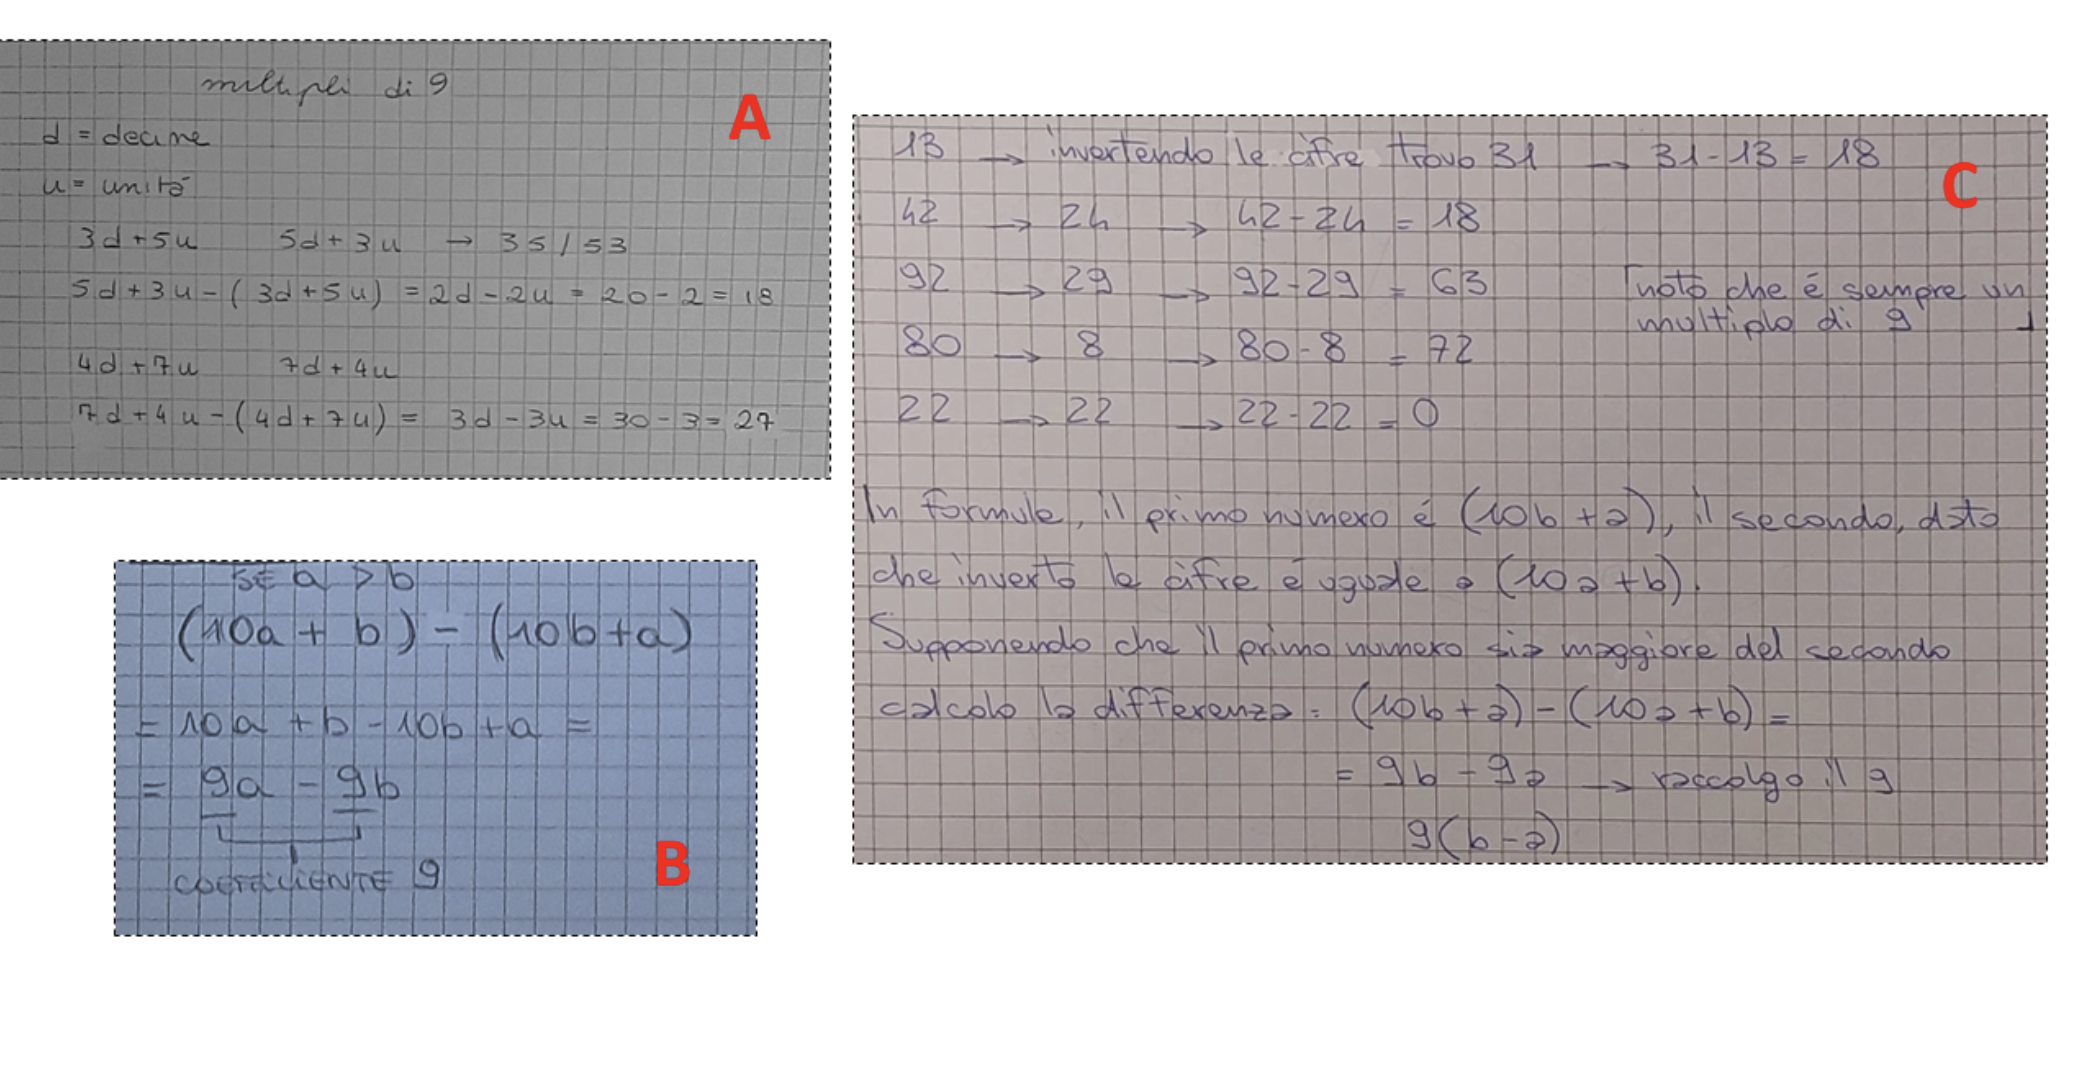 multipli di 9
A
d = decine
u = unità
3d+5u 5d+3u → 35/53
5d+3u-(3d+5u) = 2d-2u = 20-2 = 18
4d+7u 7d+4u
7d+4u-(4d+7u) = 3d-3u = 30-3 = 27
se a > b
(10a + b) - (10b+a)
= 10a + b - 10b + a =
= 9a - 9b
coefficiente 9
B
13 → invertendo le cifre trovo 31 → 31-13 = 18
C
42 → 24 → 42-24 = 18
92 → 29 → 92-29 = 63
noto che é sempre un
multiplo di 9
80 → 8 → 80-8 = 72
22 → 22 → 22-22 = 0
In formule, il primo numero é (10b +a), il secondo, dato
che inverto le cifre é uguale a (10a+b).
Supponendo che il primo numero sia maggiore del secondo
calcolo la differenza: (10b+a)-(10a+b) =
= 9b - 9a → raccolgo il 9
9(b-a)